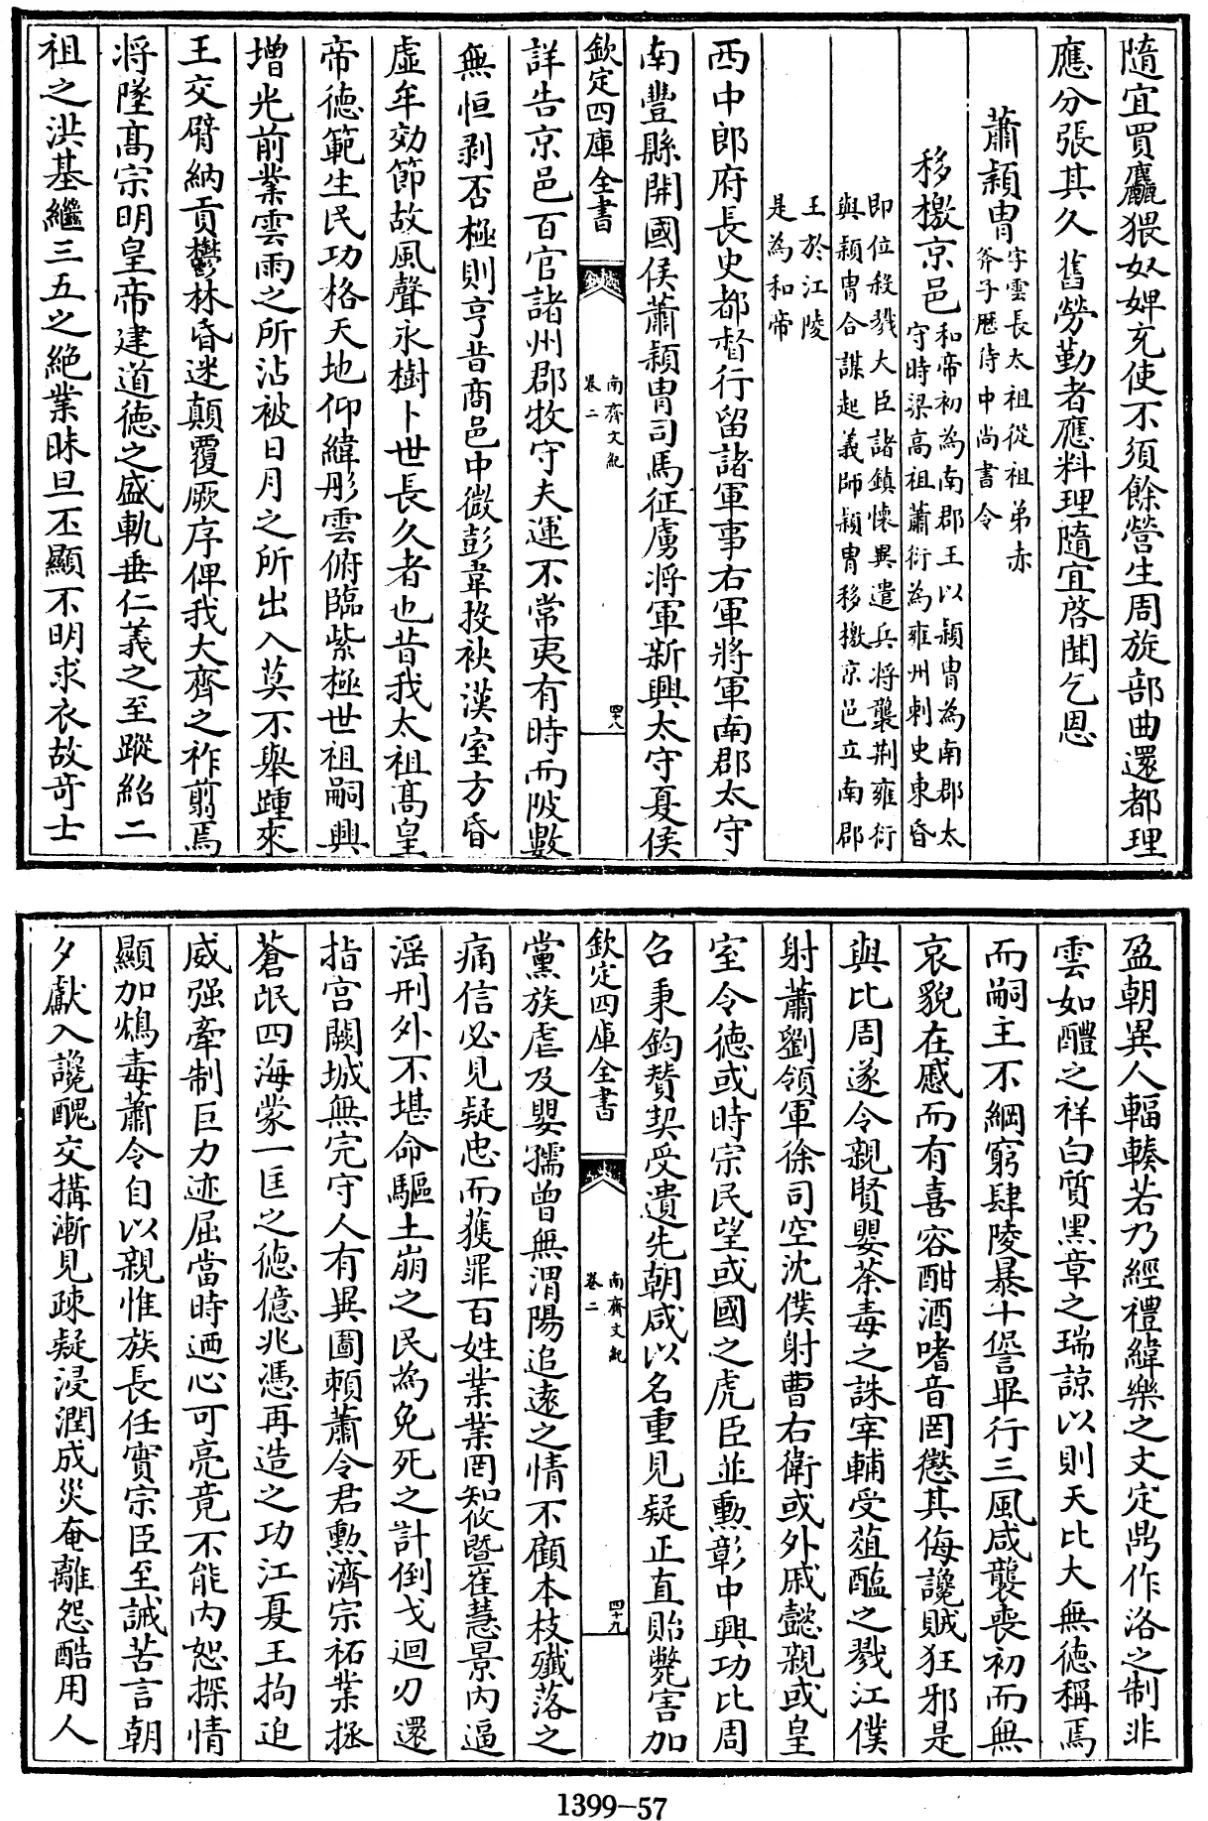 隨宜買麤猥奴婢充使不須餘營生周旋部曲還都理
應分張其久舊勞勤者應料理隨宜啓聞乞恩
蕭穎胄字雲長太祖從祖弟赤
斧子歷侍中尚書令
移檄京邑和帝初為南郡王以穎胄為南郡太
守時梁高祖蕭衍為雍州刺史東昏
即位殺戮大臣諸鎮懷異遣兵將襲荆雍衍
與穎胄合謀起義師穎胄移檄京邑立南郡
王於江陵
是為和帝
西中郎府長史都督行留諸軍事右軍將軍南郡太守
南豐縣開國侯蕭穎胄司馬征虜將軍新興太守夏侯
欽定四庫全書
南齊文紀
卷二
四十八
詳告京邑百官諸州郡牧守夫運不常夷有時而陂數
無恒剥否極則亨昔商邑中微彭韋投袂漢室方昏
虛年効節故風聲永樹卜世長久者也昔我太祖高皇
帝德範生民功格天地仰緯彤雲俯臨紫極世祖嗣興
增光前業雲雨之所沾被日月之所出入莫不舉踵來
王交臂納貢鬱林昏迷顛覆厥序俾我大齊之祚翦焉
將墜高宗明皇帝建道德之盛軌垂仁義之至蹤紹二
祖之洪基繼三五之絶業昧旦丕顯不明求衣故奇士
盈朝異人輻輳若乃經禮緯樂之文定鼎作洛之制非
雲如醴之祥白質黑章之瑞諒以則天比大無德稱焉
而嗣主不綱窮肆陵暴十愆畢行三風咸襲喪初而無
哀貌在慼而有喜容酣酒嗜音罔懲其侮讒賊狂邪是
與比周遂令親賢嬰荼毒之誅宰輔受葅醢之戮江僕
射蕭劉領軍徐司空沈僕射曹右衛或外戚懿親或皇
室令德或時宗民望或國之虎臣並勲彰中興功比周
召秉鈞贊契受遺先朝咸以名重見疑正直貽斃害加
欽定四庫全書
南齊文紀
卷二
四十九
黨族虐及嬰孺曾無渭陽追遠之情不顧本枝殲落之
痛信必見疑忠而獲罪百姓業業罔知攸暨崔慧景内逼
淫刑外不堪命驅土崩之民為免死之計倒戈迴刃還
指宫闕城無完守人有異圖頼蕭令君勲濟宗祏業拯
蒼氓四海蒙一匡之德億兆憑再造之功江夏王拘迫
威强牽制巨力迹屈當時迺心可亮竟不能内恕探情
顯加鴆毒蕭令自以親惟族長任實宗臣至誠苦言朝
夕獻入讒醜交搆漸見疎疑浸潤成災奄離怨酷用人
1399—57